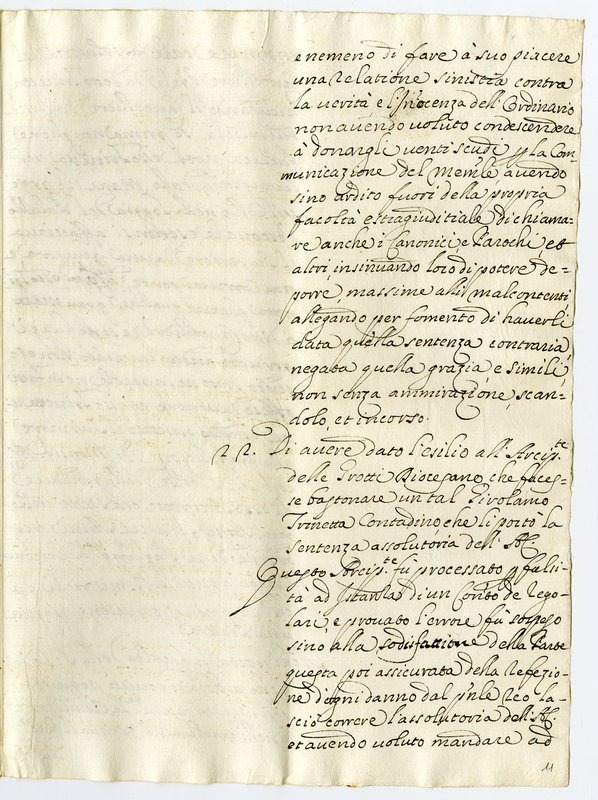 e nemeno di fare à suo piacere
una relatione sinistra contra
la verità e l'Inocenza dell'Ordinario
non avendo voluto condescendere
à donargli venti scudi p la Com-
municazione del Memle avendo
sino ardito fuori della propria
facoltà estragiuditiale di chiama-
re anche i Canonici e Parochi, et
altri, insinuando loro di potere de=
porre, massime alli malcontenti,
allegando per fomento di haverli
data quella sentenza contraria,
negata quella grazia e simili,
non senza ammirazione, scan-
dolo, et incorso.
22. Di avere dato l'esilio all'Arcip.te
delle Grotti Diocesano, che faces=
se bastonare un tal Girolamo
Trinetta Contadino che li portò la
sentenza assolutoria dell'
Questo Arcip.te fù processato p falsi-
tà ad Istanza di un Conto de Rego-
lari, e provato l'errore fù sospeso
sino alla sodisfattione della Parte
questa poi assicurata della refezio-
ne d'ogni danno dal Pnle Reo la-
sciò correre l'assolutoria dell'
et avendo voluto mandare ad
11